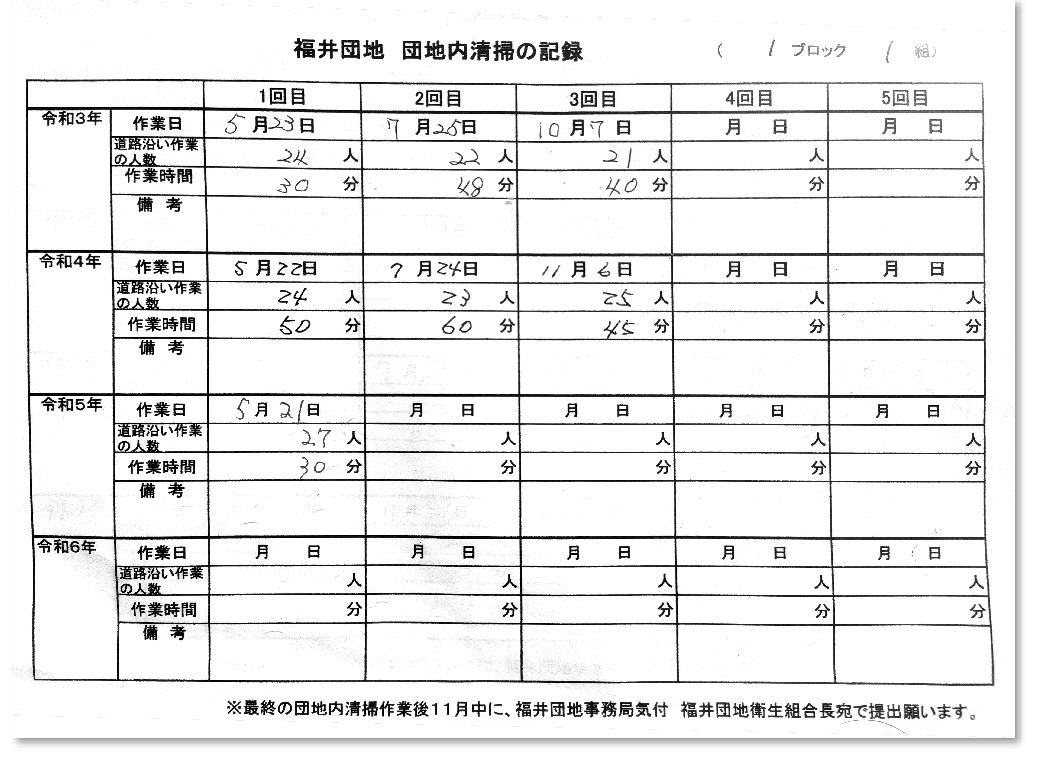 福井団地 団地内清掃の記録 ( 1 ブロック 1 組)
1回目 2回目 3回目 4回目 5回目
令和3年 作業日 5月23日 7月25日 10月7日 月 日 月 日
道路沿い作業の人数 24人 22人 21人 人 人
作業時間 30分 48分 40分 分 分
備 考
令和4年 作業日 5月22日 7月24日 11月6日 月 日 月 日
道路沿い作業の人数 24人 23人 25人 人 人
作業時間 50分 60分 45分 分 分
備 考
令和5年 作業日 5月21日 月 日 月 日 月 日 月 日
道路沿い作業の人数 27人 人 人 人 人
作業時間 30分 分 分 分 分
備 考
令和6年 作業日 月 日 月 日 月 日 月 日 月 日
道路沿い作業の人数 人 人 人 人 人
作業時間 分 分 分 分 分
備 考
※最終の団地内清掃作業後11月中に、福井団地事務局気付 福井団地衛生組合長宛で提出願います。